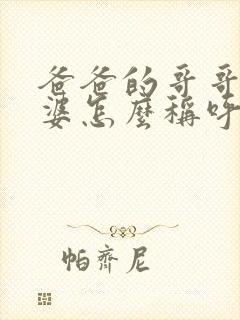 爸爸的哥哥
婆怎麼稱呼
帕齊尼